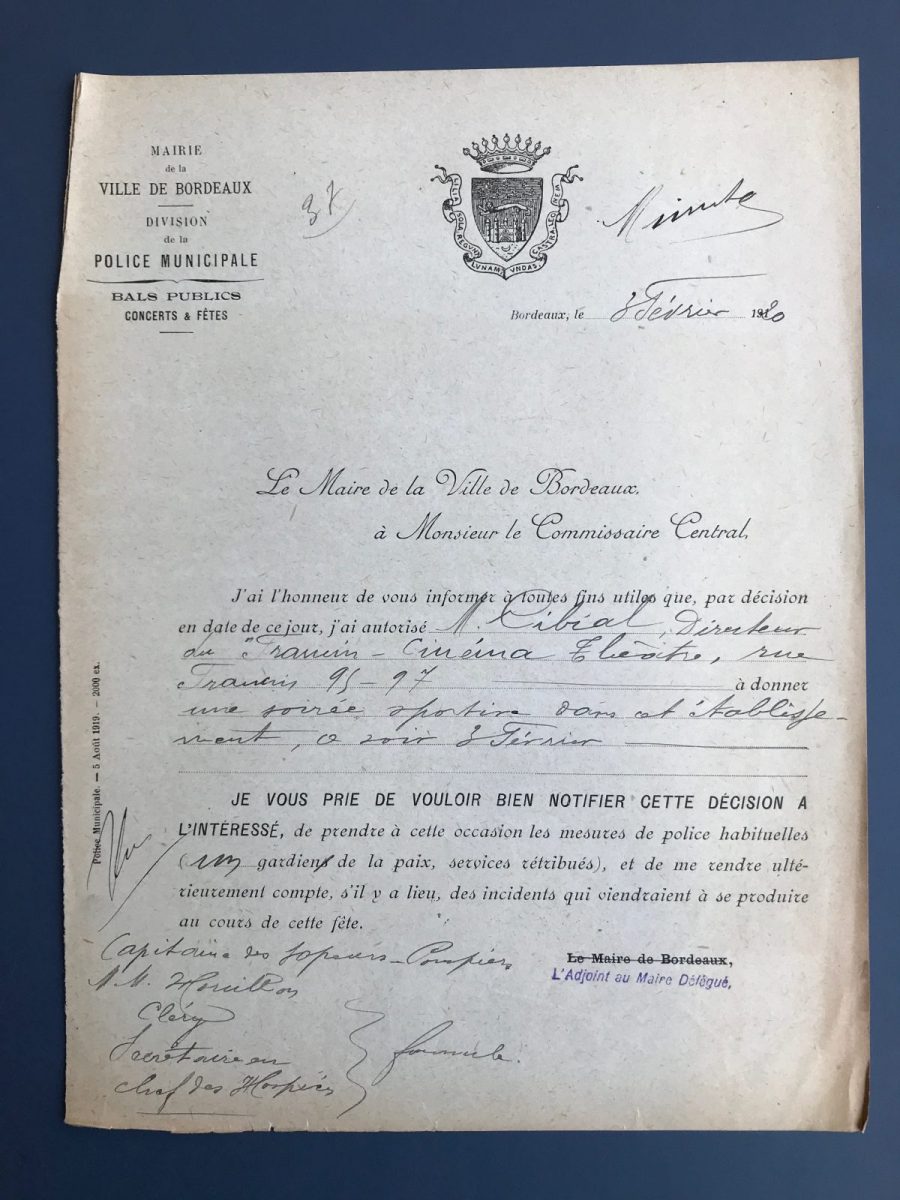 MAIRIE
de la
VILLE DE BORDEAUX
DIVISION
de la
POLICE MUNICIPALE
BALS PUBLICS
CONCERTS & FÊTES
LILIA SOLA REGUNT LUNAM UNDAS CASTRA LEONEM
Minute
Bordeaux, le 3 Février 1920
Le Maire de la Ville de Bordeaux,
à Monsieur le Commissaire Central,
J'ai l'honneur de vous informer à toutes fins utiles que, par décision
en date de ce jour, j'ai autorisé M. Cibial, Directeur
du Francin-Cinéma Théâtre, rue
Francin 95-97 à donner
une soirée sportive dans cet établisse-
ment, ce soir 3 Février
JE VOUS PRIE DE VOULOIR BIEN NOTIFIER CETTE DÉCISION A
L'INTÉRESSÉ, de prendre à cette occasion les mesures de police habituelles
(un gardien de la paix, services rétribués), et de me rendre ulté-
rieurement compte, s'il y a lieu, des incidents qui viendraient à se produire
au cours de cette fête.
Le Maire de Bordeaux,
L'Adjoint au Maire Délégué,
Capitaine des Sapeurs-Pompiers
M.M.
Cléry
Secrétaire en
chef des Hospices
formule.
Police Municipale. — 5 Août 1919. — 2000 ex.